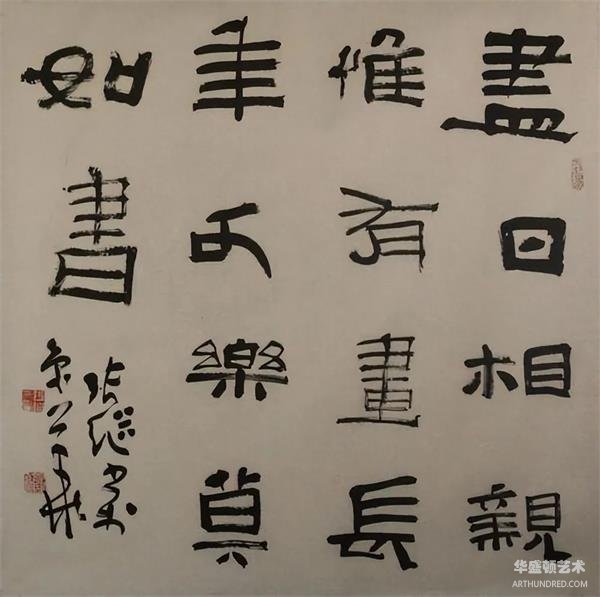 盡日相親
惟有畫長
年可樂莫
如書
张继
华盛顿艺术
ARTHUNDRED.COM